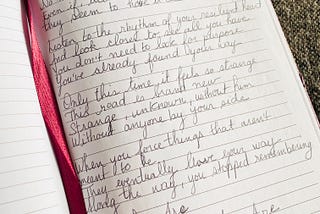 they seem to
Listen to the rhythm of your resilient heart
And look closer to see all you have
You don't need to look for purpose
You've already found your way
Only this time it feels so strange
This road is brand new
Strange, unknown, without him
Without anyone by your side
When you force things that aren't
meant to be
They eventually leave your way
Along the way you stopped remembering